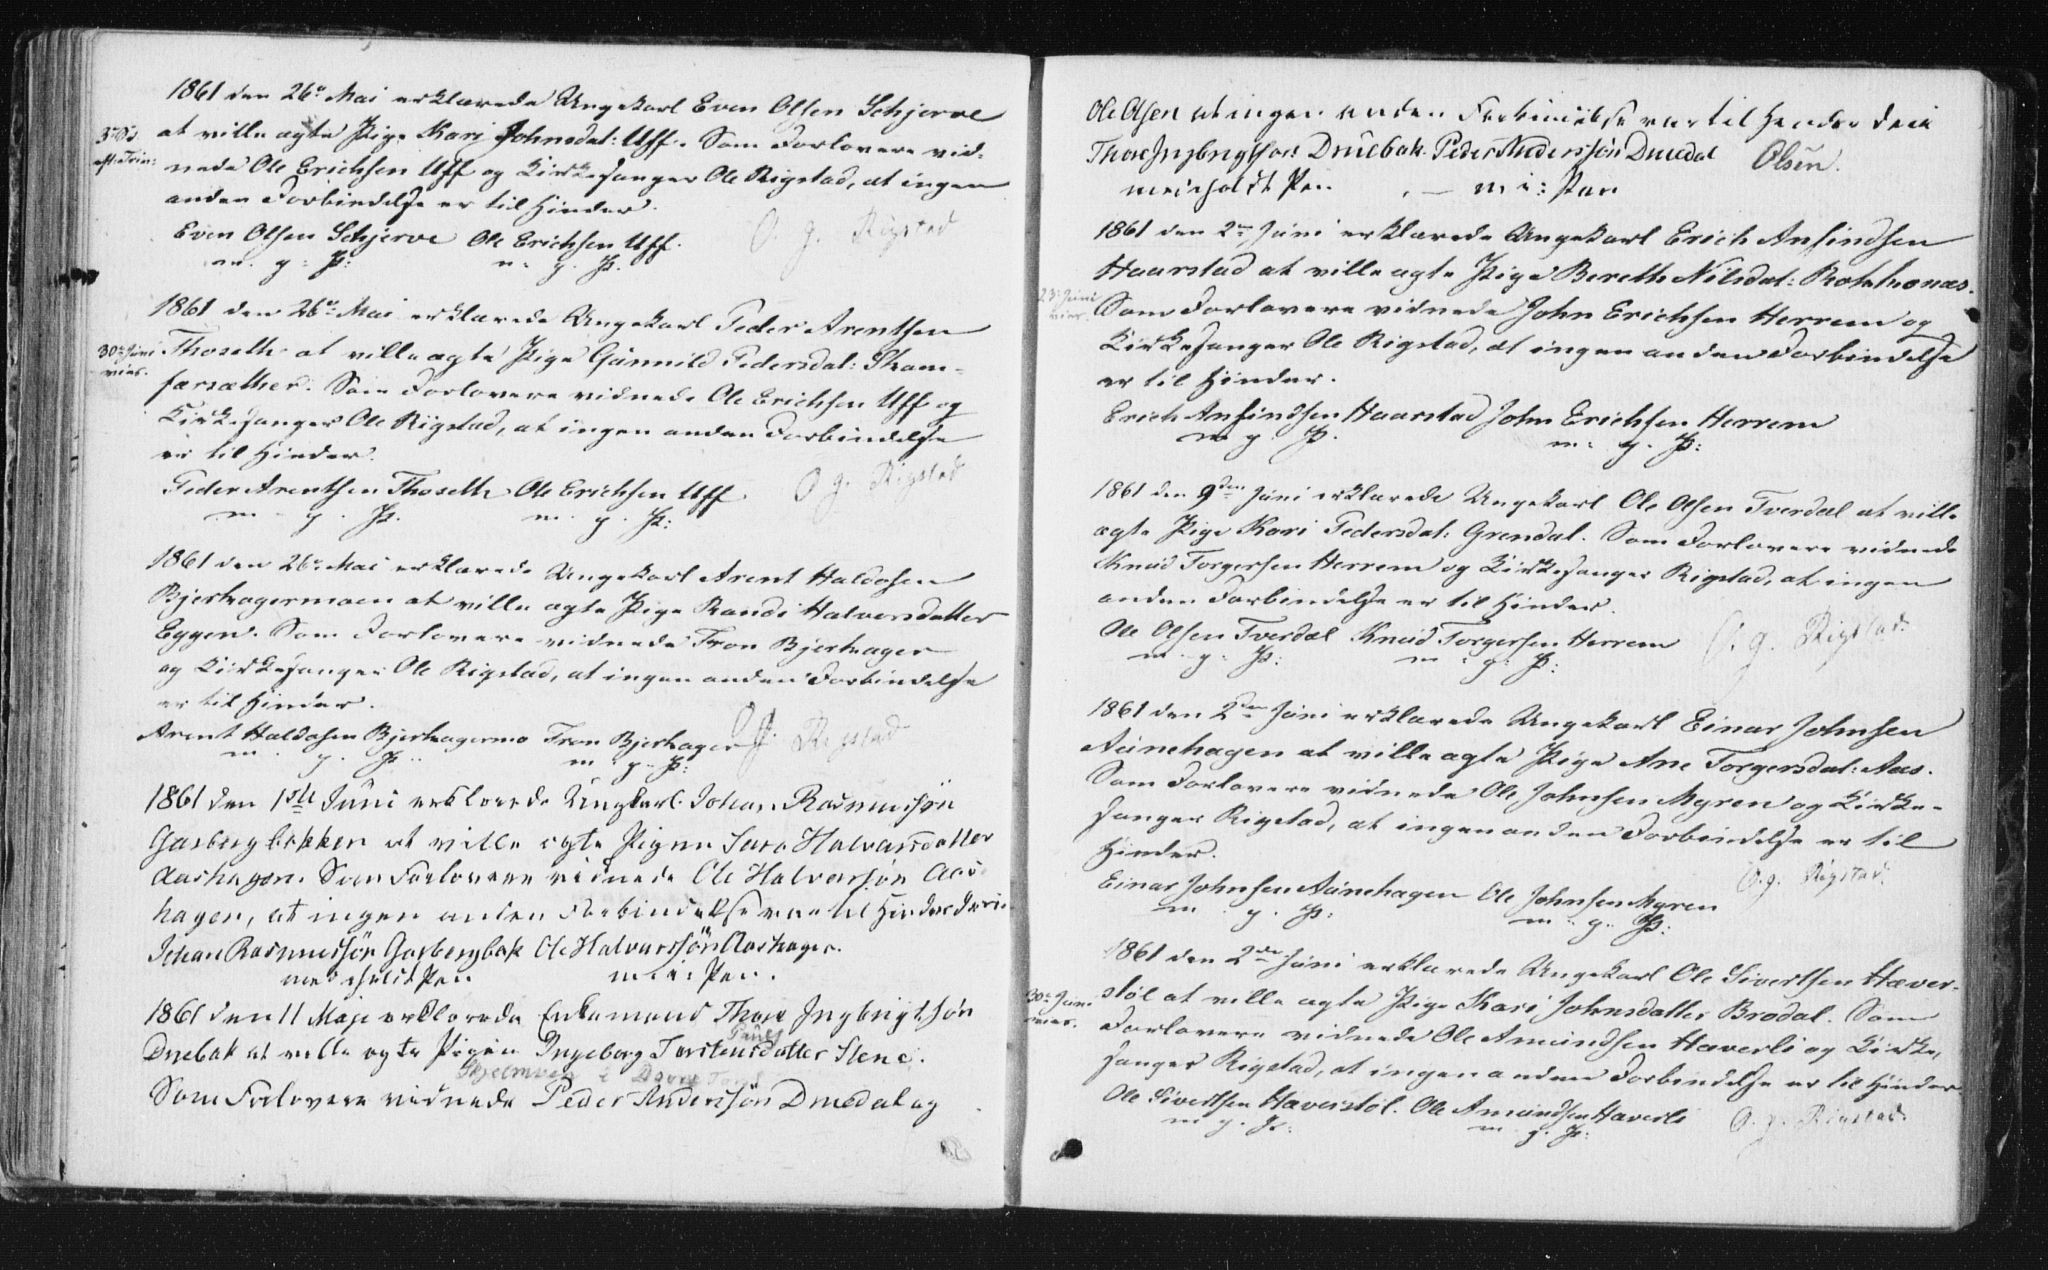 1861 den 26de Mai erklærede Ungekarl Even Olsen Schjerve
3die S.
eft. Trin:
at ville ægte Pige Kari Johnsdat: Uff. Som Forlovere vid-
nede Ole Erichsen Uff og Kirkesanger Ole Rigstad, at ingen
anden Forbindelse er til Hinder.
Even Olsen Schjerve Ole Erichsen Uff. O. g. Rigstad
m. g: P: m. g. P.
1861 den 26de Mai erklærede Ungekarl Peder Arentsen
30te Juni
vies.
Thoseth at ville ægte Pige Gunnild Pedersdat: Skam-
færsæther. Som Forlovere vidnede Ole Erichsen Uff og
Kirkesanger Ole Rigstad, at ingen anden Forbindelse
er til Hinder.
Peder Arentsen Thoseth Ole Erichsen Uff O g. Rigstad
m. g. P. m. g. P:
1861 den 26de Mai erklærede Ungekarl Arent Haldosen
Bjerkagermoen at ville ægte Pige Randi Halvorsdatter
Eggen. Som Forlovere vidnede Tron Bjerkager
og Kirkesanger Ole Rigstad, at ingen anden Forbindelse
er til Hinder.
Arent Haldosen Bjerkagermo Tron Bjerkager O g. Rigstad
m. g. P. m. g. P:
1861 den 1ste Juni erklærede Ungkarl Johan Rasmussøn
Garbergbækken at ville egte Pigen Sara Halvarsdatter
Aashagen. Som Forlovere vidnede Ole Halvarsøn Aas-
hagen, at ingen anden Forbindelse var til Hinder deri
Johan Rasmussøn Garbergbæk Ole Halvarssøn Aashagen.
med holdt Pen m i: Pen.
1861 den 11 Maje erklærede Enkemand Thore Ingbrigtsøn
Pauls
Druebak at ville egte Pigen Ingeborg Torstensdatter Slene.
Som Forlovere vidnede Peder Anderssøn Druedal og
Ole Olsen at ingen anden Forbindelse var til Hender deri
Thore Ingbrigtsøn Druebak. Peder Anderssøn Druedal Olsen.
med holdt Pen m i: Pen
1861 den 2den Juni erklærede Ungekarl Erich Anfindsen
Haarstad at ville ægte Pige Bereth Nilsdat: Rokkones.
23: Juni
vies.
Som Forlovere vidnede John Erichsen Herrem og
Kirkesanger Ole Rigstad, at ingen anden Forbindelse
er til Hinder.
Erich Anfindsen Haarstad John Erichsen Herrem
m g. P. m. g. P:
1861 den 9den Juni erklærede Ungekarl Ole Olsen Tverdal at ville
ægte Pige Kari Pedersdat: Grendal. Som Forlovere vidnede
Knud Torgersen Herrem og Kirkesanger Rigstad, at ingen
anden Forbindelse er til Hinder.
Ole Olsen Tverdal Knud Torgersen Herrem O. g. Rigstad.
m. g. P: m. g. P:
1861 den 2den Juni erklærede Ungekarl Einar Johnsen
Aunehagen at ville ægte Pige Ane Torgersdat: Aas.
Som Forlovere vidnede Ole Johnsen Myren og Kirke-
sanger Rigstad, at ingen anden Forbindelse er til
Hinder.
Einar Johnsen Aunehagen Ole Johnsen Myren O. g. Rigstad.
m. g. P: m. g. P:
1861 den 2den Juni erklærede Ungekarl Ole Sivertsen Hæver-
30te Juni
vies.
støl at ville ægte Pige Kari Johnsdatter Brødal. Som
Forlovere vidnede Ole Amundsen Hæverli og Kirke-
sanger Rigstad, at ingen anden Forbindelse er til Hinder.
Ole Sivertsen Hæverstøl. Ole Amundsen Hæverli O. g. Rigstad.
m. g. P: m. g. P: